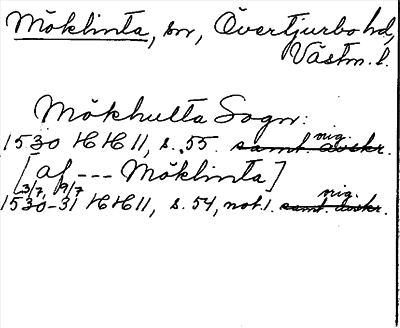 Möklinta, sn, Övertjurbo hd,
Västm. l.
Mökhulta Sogn:
1530 HH 11, s. 55. samt. avskr. orig.
[af --- Möklinta]
3/7, 9/7 orig.
1530-31 HH 11, s. 54, not 1. samt. avskr.